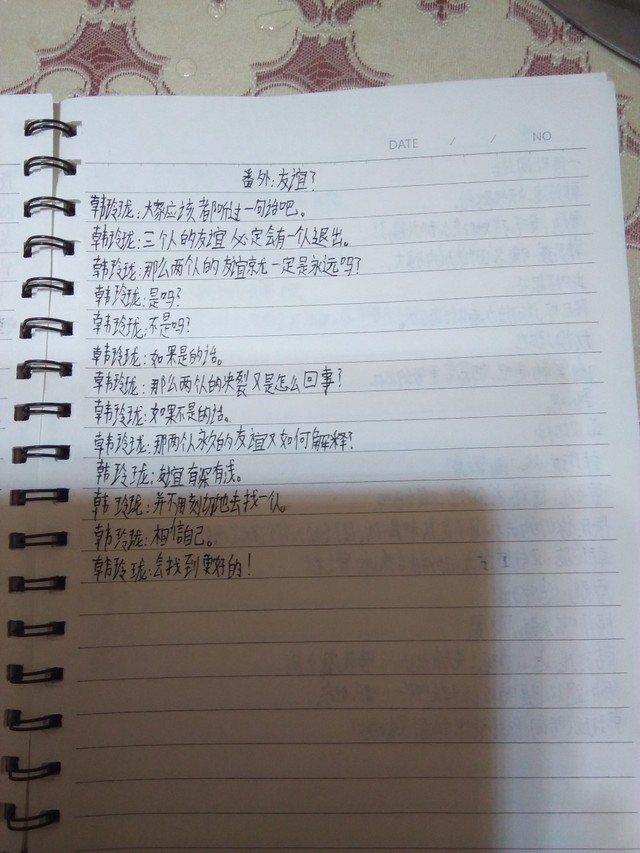 DATE / / NO
番外:友谊?
韩玲珑:大家应该都听过一句话吧。
韩玲珑:三个人的友谊必定会有一个人退出。
韩玲珑:那么两个人的友谊就一定是永远吗?
韩玲珑:是吗?
韩玲珑:不是吗?
韩玲珑:如果是的话。
韩玲珑:那么两个人的决裂又是怎么回事?
韩玲珑:如果不是的话。
韩玲珑:那两个人永久的友谊又如何解释?
韩玲珑:友谊有深有浅。
韩玲珑:并不用刻切地去找一个人。
韩玲珑:相信自己。
韩玲珑:会找到更好的!